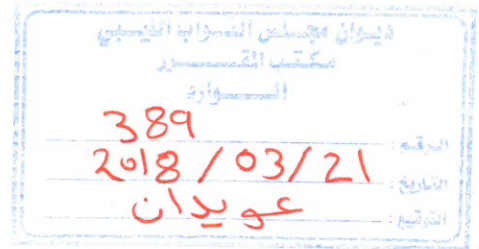 ديوان مجلس النواب الليبي
مكتب المقرر
الوارد
الرقم : 389
التاريخ : 2018/03/21
التوقيع : عويدان